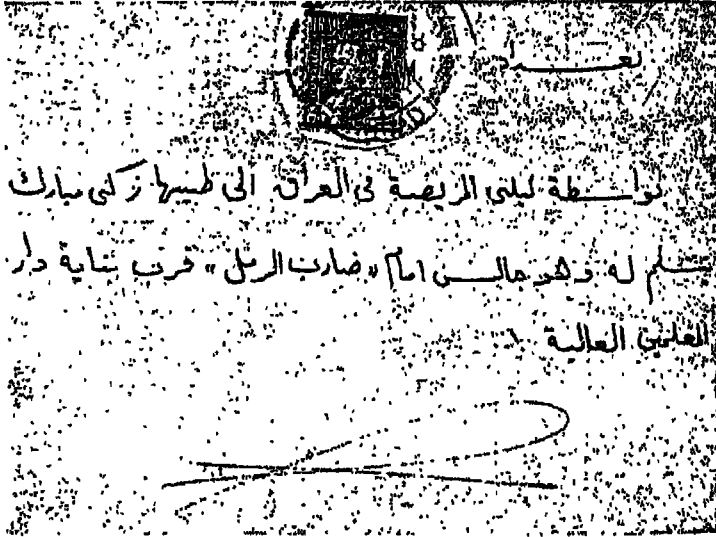 بغداد
بواسطة ليلى المريضة في العراق الى طبيبها زكي مبارك
يسلم له وهو جالس امام «ضارب الرمل» قرب بناية دار
المعلمين العالية